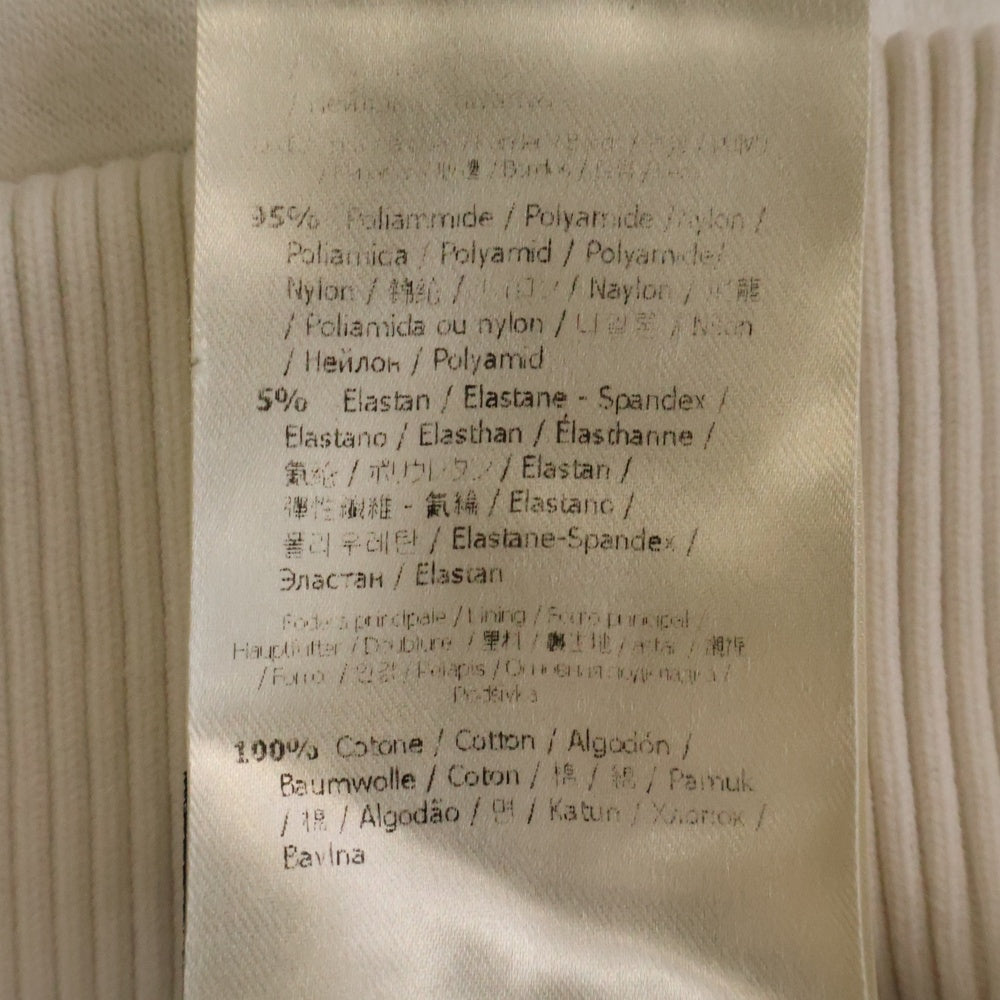 95% Poliammide / Polyamide / Nylon /
Poliamida / Polyamid / Polyamide/
Nylon / 錦綸 / ナイロン / Naylon / 尼龍
/ Poliamida ou nylon / 나일론 / Nilon
/ Нейлон / Polyamid
5% Elastan / Elastane - Spandex /
Elastano / Elasthan / Élasthanne /
氨綸 / ポリウレタン / Elastan /
彈性纖維 - 氨綸 / Elastano /
폴리우레탄 / Elastane-Spandex /
Эластан / Elastan
Fodera principale / Lining / Forro principal /
Hauptfutter / Doublure / 里料 / 裏生地 / astar /
/ Forro / 안감 / Pelapis / Основная подкладка /
Podšívka
100% Cotone / Cotton / Algodón /
Baumwolle / Coton / 棉 / 綿 / Pamuk
/ 棉 / Algodão / 면 / Katun / Хлопок /
Bavlna